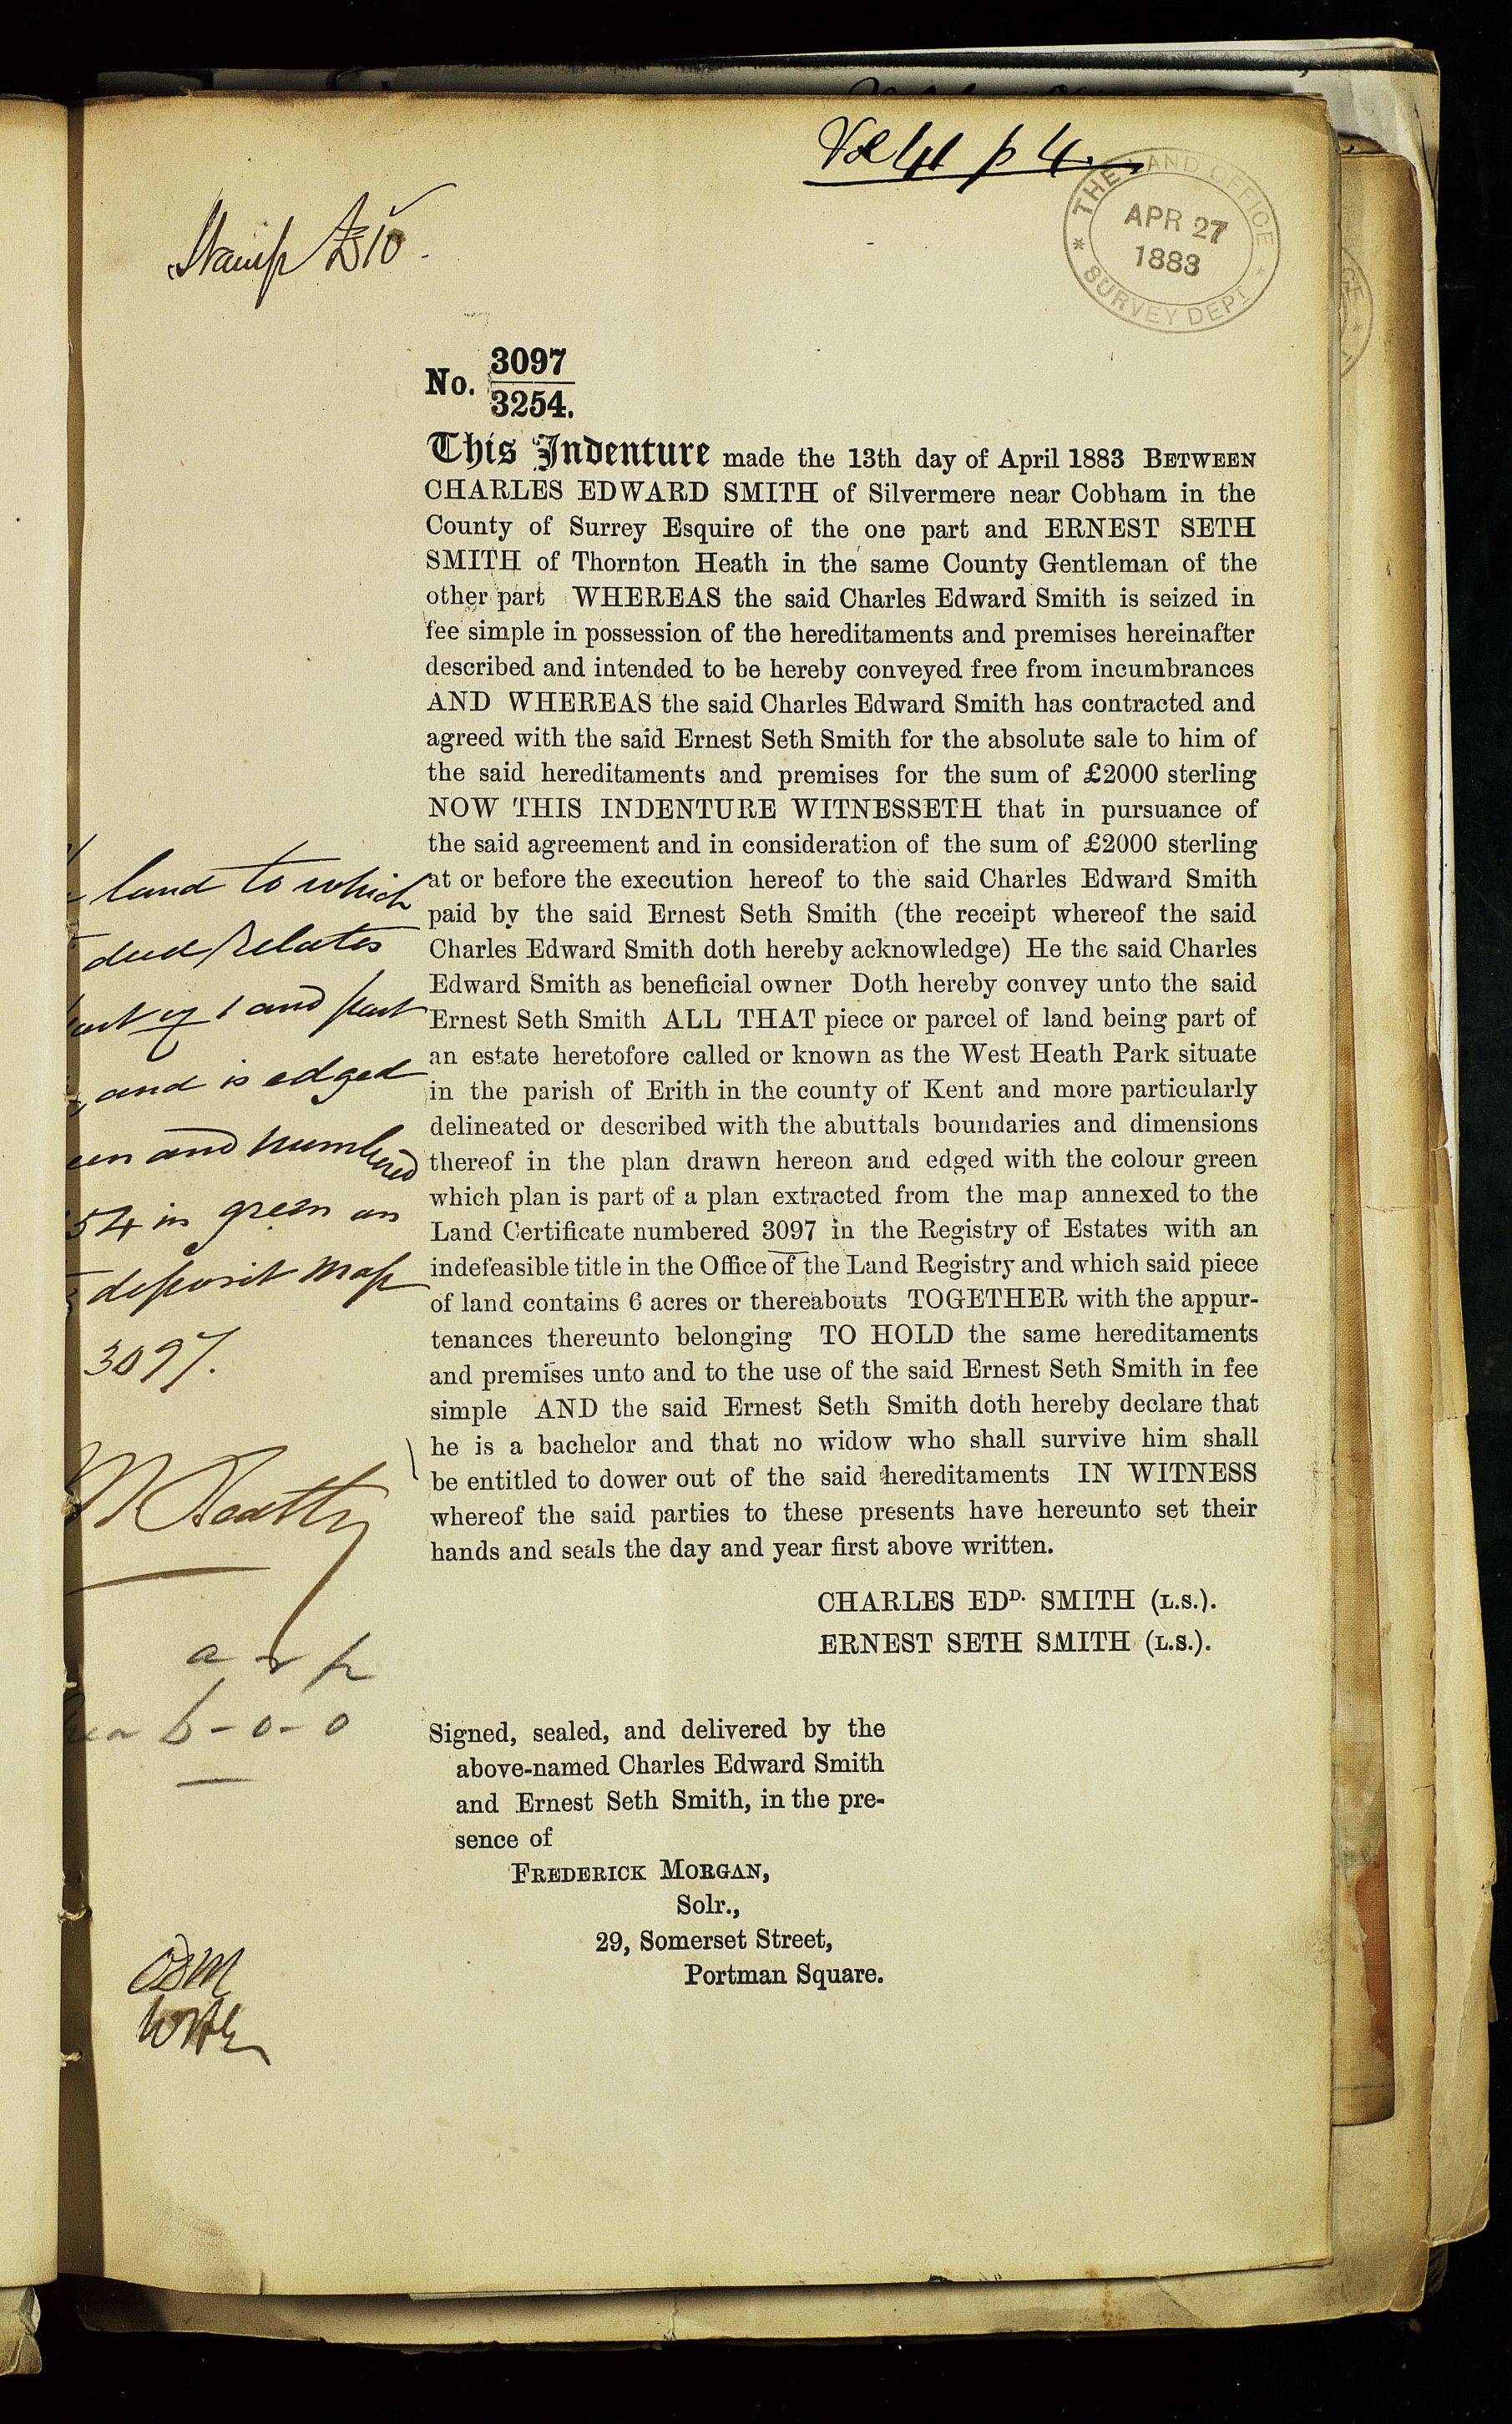 Vol 41 p 4.
THE LAND OFFICE
APR 27
1883
SURVEY DEPT
Stamp £10.
No. 3097
3254.
This Indenture made the 13th day of April 1883 BETWEEN
CHARLES EDWARD SMITH of Silvermere near Cobham in the
County of Surrey Esquire of the one part and ERNEST SETH
SMITH of Thornton Heath in the same County Gentleman of the
other part WHEREAS the said Charles Edward Smith is seized in
fee simple in possession of the hereditaments and premises hereinafter
described and intended to be hereby conveyed free from incumbrances
AND WHEREAS the said Charles Edward Smith has contracted and
agreed with the said Ernest Seth Smith for the absolute sale to him of
the said hereditaments and premises for the sum of £2000 sterling
NOW THIS INDENTURE WITNESSETH that in pursuance of
the said agreement and in consideration of the sum of £2000 sterling
at or before the execution hereof to the said Charles Edward Smith
paid by the said Ernest Seth Smith (the receipt whereof the said
Charles Edward Smith doth hereby acknowledge) He the said Charles
Edward Smith as beneficial owner Doth hereby convey unto the said
Ernest Seth Smith ALL THAT piece or parcel of land being part of
an estate heretofore called or known as the West Heath Park situate
in the parish of Erith in the county of Kent and more particularly
delineated or described with the abuttals boundaries and dimensions
thereof in the plan drawn hereon and edged with the colour green
which plan is part of a plan extracted from the map annexed to the
Land Certificate numbered 3097 in the Registry of Estates with an
indefeasible title in the Office of the Land Registry and which said piece
of land contains 6 acres or thereabouts TOGETHER with the appur-
tenances thereunto belonging TO HOLD the same hereditaments
and premises unto and to the use of the said Ernest Seth Smith in fee
simple AND the said Ernest Seth Smith doth hereby declare that
he is a bachelor and that no widow who shall survive him shall
be entitled to dower out of the said hereditaments IN WITNESS
whereof the said parties to these presents have hereunto set their
hands and seals the day and year first above written.
CHARLES EDD. SMITH (L.S.).
ERNEST SETH SMITH (L.S.).
Signed, sealed, and delivered by the
above-named Charles Edward Smith
and Ernest Seth Smith, in the pre-
sence of
FREDERICK MORGAN,
Solr.,
29, Somerset Street,
Portman Square.
land to which
deed relates
of 1 and part
and is edged
and numbered
54 in green on
deposit map
3097.
a r p
6 - 0 - 0